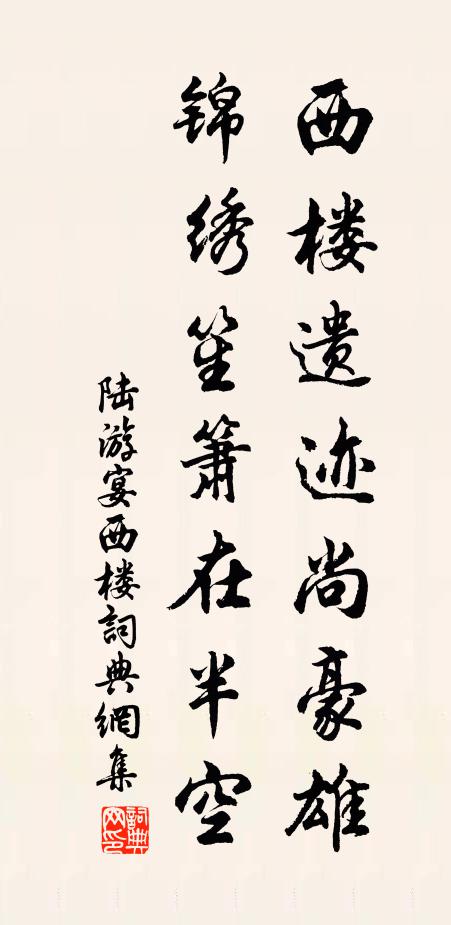 西楼遗迹尚豪雄
锦绣笙箫在半空
陆游宴西楼詞典網集
詞典网印